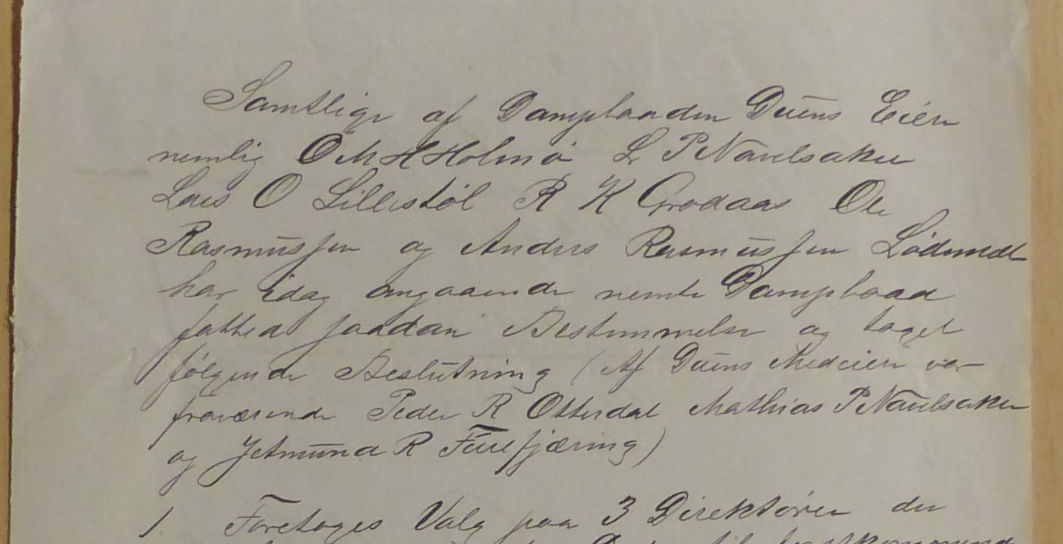 Samtlige af Dampbaaden Duens Eiere
nemlig O M H Holmø L P Navelsaker
Lars O Lillestøl R K Grodaas Ole
Rasmussen og Anders Rasmussen Lødemel
har idag angaaende nemte Dampbaad
fatted saadan Bestemmelse og taget
følgende Beslutning (Af Duens Medeiere var
fraværende Peder R Otterdal Mathias P Navelsaker
og Jetmund R Fure/fjæring)
1. Foretages Valg paa 3 Direktører der